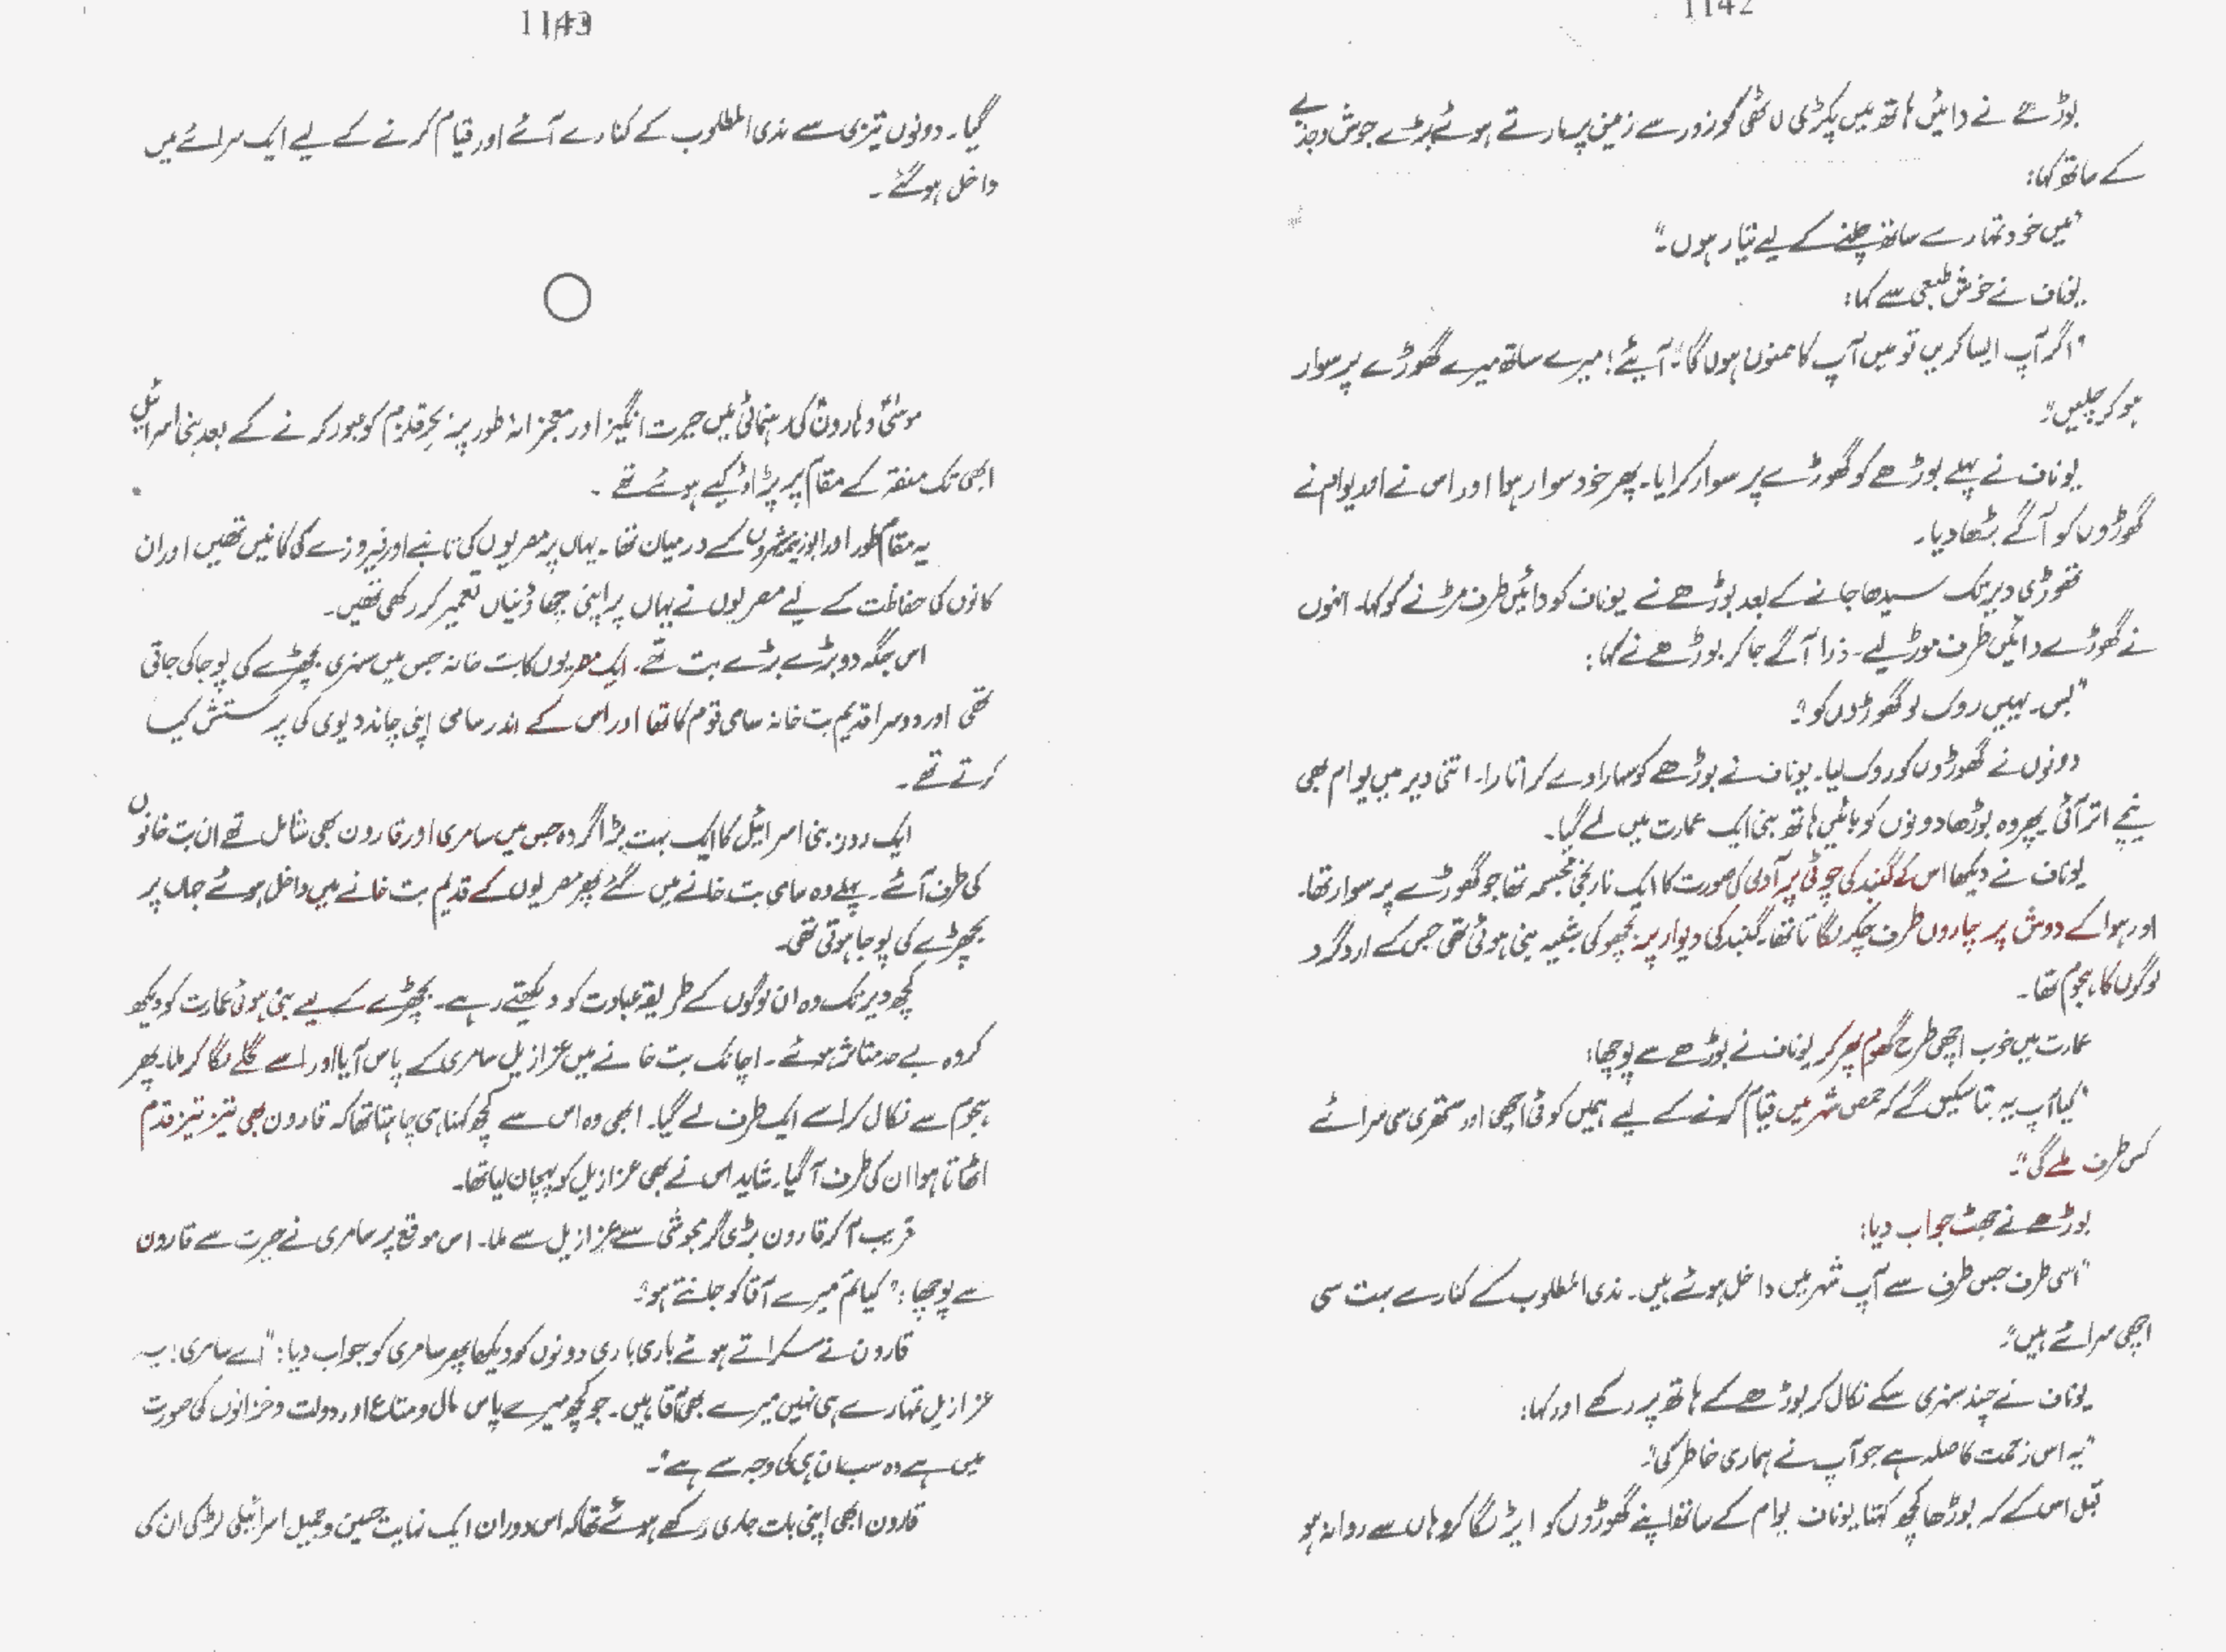 1142
بوڑھے نے دائیں ہاتھ میں پکڑی لاٹھی کو زور سے زمین پر مارتے ہوئے بڑے جوش و جذبے
کے ساتھ کہا:
"میں خود تمہارے ساتھ چلنے کے لیے تیار ہوں۔"
یوناف نے خوش طبعی سے کہا:
"اگر آپ ایسا کریں تو میں آپ کا ممنون ہوں گا۔ آیئے! میرے ساتھ میرے گھوڑے پر سوار
ہو کر چلیں۔"
یوناف نے پہلے بوڑھے کو گھوڑے پر سوار کرایا۔ پھر خود سوار ہوا اور اس نے اور یوام نے
گھوڑوں کو آگے بڑھا دیا۔
تھوڑی دیر تک سیدھا جانے کے بعد بوڑھے نے یوناف کو دائیں طرف مڑنے کو کہا۔ انہوں
نے گھوڑے دائیں طرف موڑ لیے۔ ذرا آگے جا کر بوڑھے نے کہا:
"بس۔ یہیں روک لو گھوڑوں کو"۔
دونوں نے گھوڑوں کو روک لیا۔ یوناف نے بوڑھے کو سہارا دے کر اتارا۔ اتنی دیر میں یوام بھی
نیچے اتر آئی پھر وہ بوڑھا دونوں کو بائیں ہاتھ بنی ایک عمارت میں لے گیا۔
یوناف نے دیکھا اس کے گنبد کی چوٹی پر آدمی کی صورت کا ایک تاریخی مجسمہ تھا جو گھوڑے پر سوار تھا۔
اور ہوا کے دوش پر چاروں طرف چکر لگاتا تھا۔ گنبد کی دیوار پر بچھو کی شبیہ بنی ہوئی تھی جس کے ارد گرد
لوگوں کا ہجوم تھا۔
عمارت میں خوب اچھی طرح گھوم پھر کر یوناف نے بوڑھے سے پوچھا:
"کیا آپ یہ بتا سکیں گے کہ حمص شہر میں قیام کرنے کے لیے ہمیں کوئی اچھی اور ستھری سی سرائے
کس طرف ملے گی"۔
بوڑھے نے جھٹ جواب دیا:
"اسی طرف جس طرف سے آپ شہر میں داخل ہوئے ہیں۔ ندی المطلوب کے کنارے بہت سی
اچھی سرائے ہیں"۔
یوناف نے چند سنہری سکے نکال کر بوڑھے کے ہاتھ پر رکھے اور کہا:
"یہ اس زحمت کا صلہ ہے جو آپ نے ہماری خاطر کی"۔
قبل اس کے کہ بوڑھا کچھ کہتا یوناف یوام کے ساتھ اپنے گھوڑوں کو ایڑ لگا کر وہاں سے روانہ ہو
1143
گیا۔ دونوں تیزی سے ندی المطلوب کے کنارے آئے اور قیام کرنے کے لیے ایک سرائے میں
داخل ہو گئے۔
موسیٰؑ و ہارونؑ کی رہنمائی میں حیرت انگیز اور معجزانہ طور پر بحرِ قلزم کو عبور کرنے کے بعد بنی اسرائیل
ابھی تک منفتہ کے مقام پر پڑاؤ کیے ہوئے تھے۔
یہ مقام طور اور ابوزنیمہ شہروں کے درمیان تھا۔ یہاں پر مصریوں کی تانبے اور فیروزے کی کانیں تھیں اور ان
کانوں کی حفاظت کے لیے مصریوں نے یہاں پر اپنی چھاؤنیاں تعمیر کر رکھی تھیں۔
اس جگہ دو بڑے بڑے بت تھے۔ ایک مصریوں کا بت خانہ جس میں سنہری بچھڑے کی پوجا کی جاتی
تھی اور دوسرا قدیم بت خانہ سامی قوم کا تھا اور اس کے اندر سامی اپنی چاند دیوی کی پرستش کیا
کرتے تھے۔
ایک روز بنی اسرائیل کا ایک بہت بڑا گروہ جس میں سامری اور قارون بھی شامل تھے ان بت خانوں
کی طرف آئے۔ پہلے وہ سامی بت خانے میں گئے پھر مصریوں کے قدیم بت خانے میں داخل ہوئے جہاں پر
بچھڑے کی پوجا ہوتی تھی۔
کچھ دیر تک وہ ان لوگوں کے طریقہ عبادت کو دیکھتے رہے۔ بچھڑے کے لیے بنی ہوئی عمارت کو دیکھ
کر وہ بے حد متاثر ہوئے۔ اچانک بت خانے میں عزازیل سامری کے پاس آیا اور اسے گلے لگا کر ملا۔ پھر
ہجوم سے نکال کر اسے ایک طرف لے گیا۔ ابھی وہ اس سے کچھ کہنا ہی چاہتا تھا کہ قارون بھی تیز تیز قدم
اٹھاتا ہوا ان کی طرف آ گیا۔ شاید اس نے بھی عزازیل کو پہچان لیا تھا۔
قریب آ کر قارون بڑی گرمجوشی سے عزازیل سے ملا۔ اس موقع پر سامری نے حیرت سے قارون
سے پوچھا: "کیا تم میرے آقا کو جانتے ہو"؟
قارون نے مسکراتے ہوئے باری باری دونوں کو دیکھا پھر سامری کو جواب دیا: "اے سامری! یہ
عزازیل تمہارے ہی نہیں میرے بھی آقا ہیں۔ جو کچھ میرے پاس مال و متاع اور دولت و خزانوں کی صورت
میں ہے وہ سب ان ہی کی وجہ سے ہے"۔
قارون ابھی اپنی بات جاری رکھے ہوئے تھا کہ اس دوران ایک نہایت حسین و جمیل اسرائیلی لڑکی ان کی